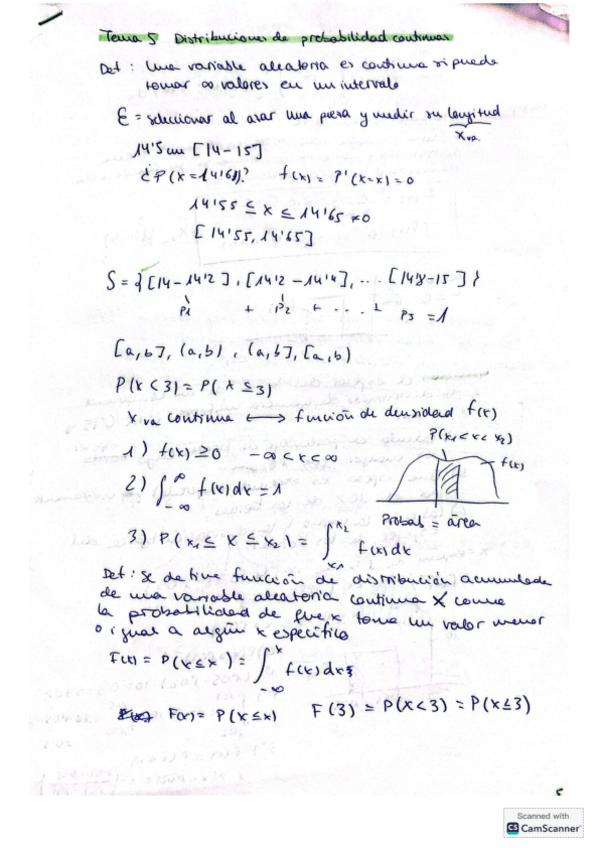 Tema 5 Distribuciones de probabilidad continuas
Def : Una variable aleatoria es continua si puede
tomar ∞ valores en un intervalo
ε = seleccionar al azar una pieza y medir su longitud
x va.
14'5 cm [14-15]
¿P(x=14'6)? f(x) = P'(x=x) = 0
14'55 ≤ x ≤ 14'65 ≠0
[14'55, 14'65]
S = {[14-14'2], [14'2-14'4], ... [14'8-15]}
P1 + P2 + ... + P5 = 1
[a,b], (a,b), (a,b], [a,b)
P(x<3) = P(x≤3)
x va continua ⟷ función de densidad f(x)
P(x1<x<x2)
1) f(x) ≥ 0 -∞<x<∞
f(x)
2) ∫_{-∞}^{∞} f(x)dx = 1
Probab = área
3) P(x1 ≤ x ≤ x2) = ∫_{x1}^{x2} f(x)dx
Def : se define función de distribución acumulada
de una variable aleatoria continua X como
la probabilidad de que x tome un valor menor
o igual a algún x específico
F(x) = P(x≤x) = ∫_{-∞}^{x} f(x)dx
F(x) = P(x≤x) F(3) = P(x<3) = P(x≤3)
5
Scanned with
CS CamScanner